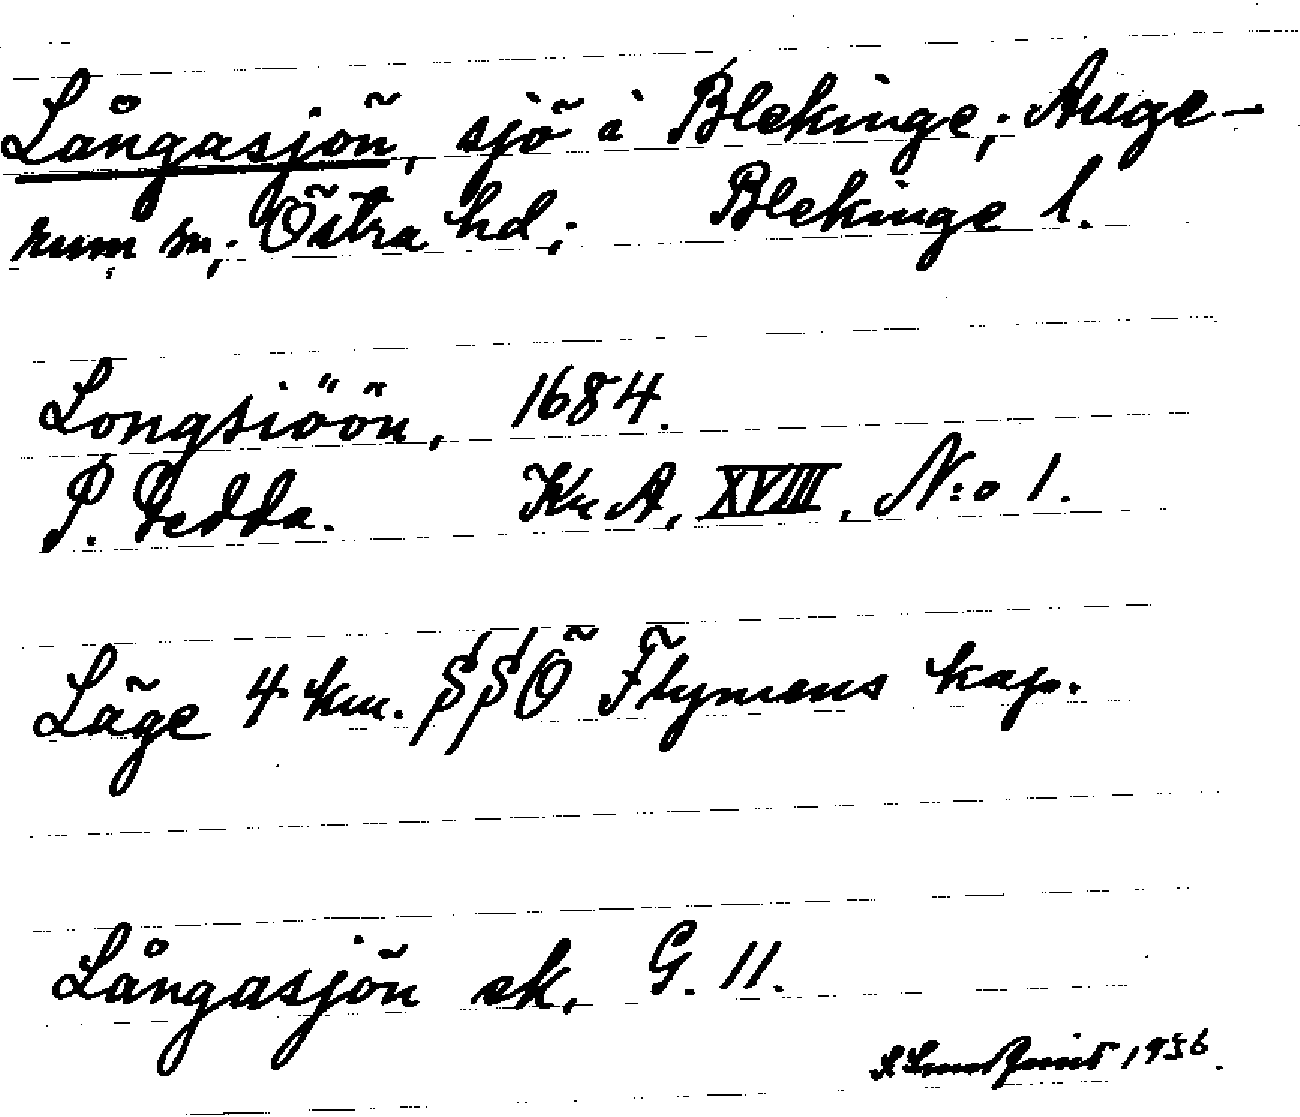 Långasjön, sjö i Blekinge; Auge-
rum sn; Östra hd; Blekinge l.
Longsiöön, 1684.
P. Gedda. Kr A, XVIII, N:o 1.
Läge 4 km. SSÖ Flymens kap.
Långasjön sk, G. 11.
1936.